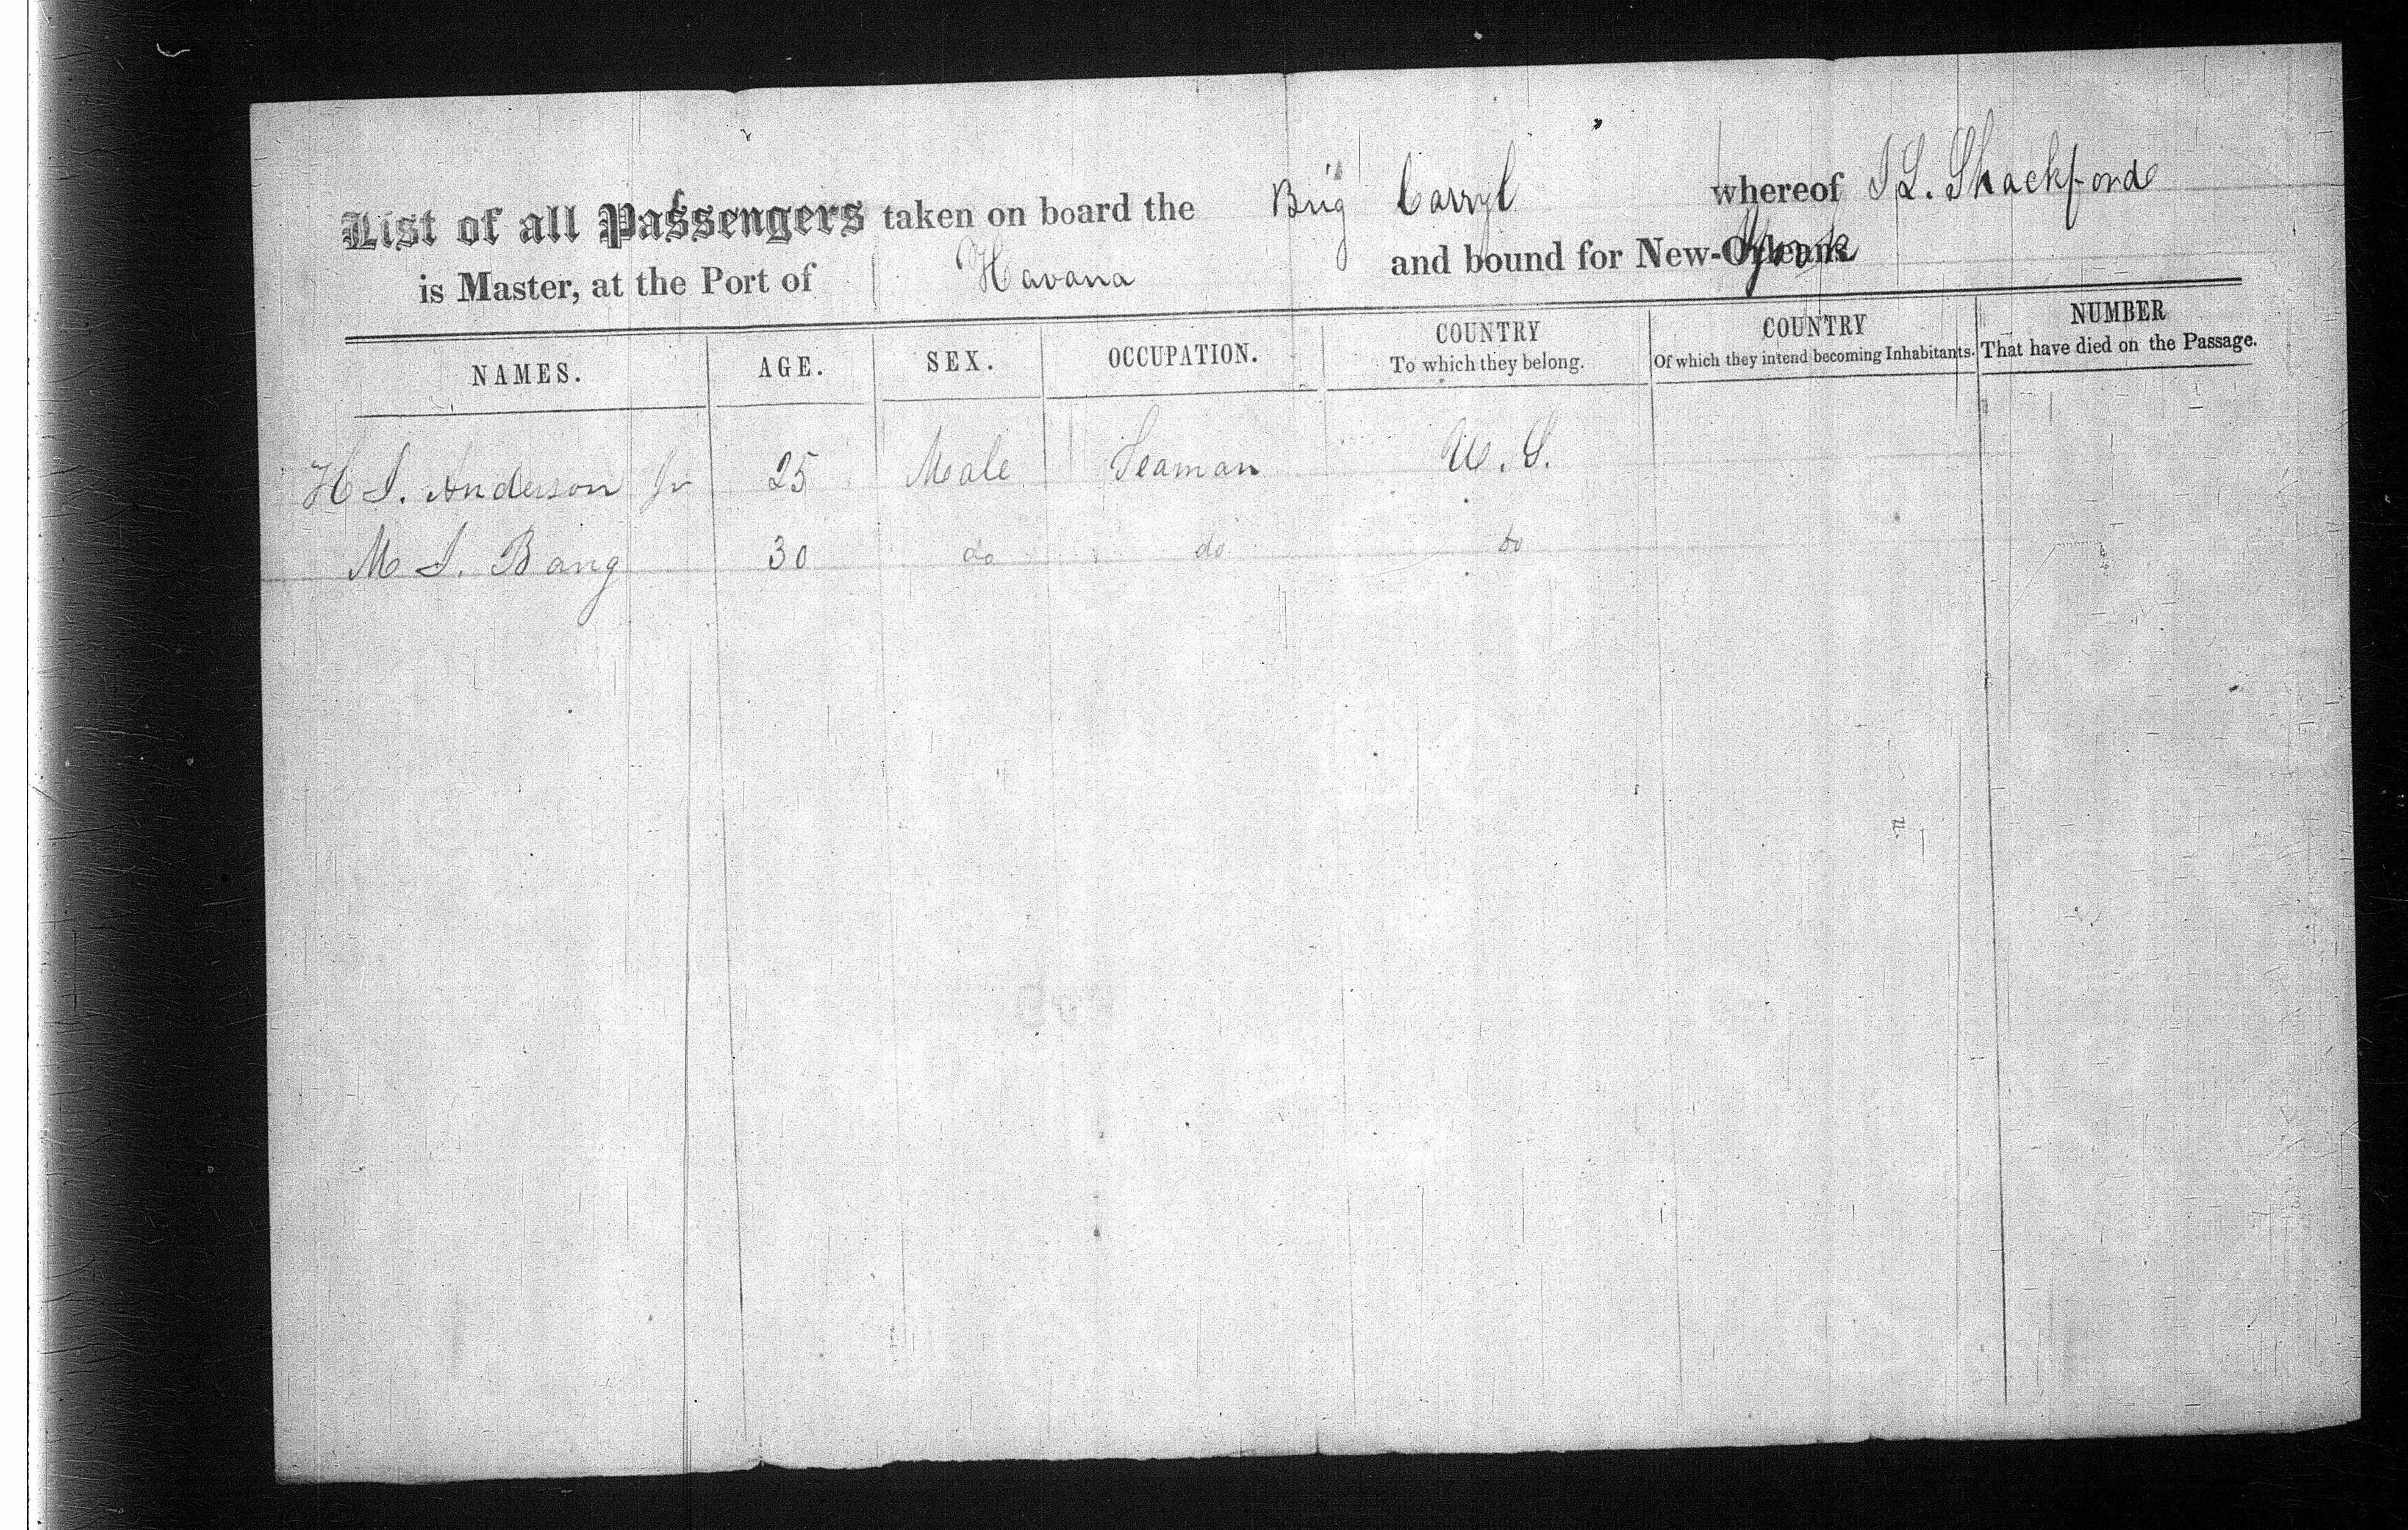 List of all Passengers taken on board the Brig Carryl whereof I L. Shackford
is Master, at the Port of Havana and bound for New-Orleans York
NAMES. AGE. SEX. OCCUPATION. COUNTRY To which they belong. COUNTRY Of which they intend becoming Inhabitants. NUMBER That have died on the Passage.
H S. Anderson Jr 25 Male Seaman U. S.
M S. Bang 30 do do do